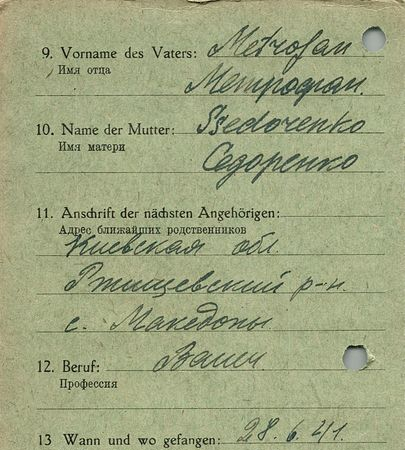 9. Vorname des Vaters: Metrofan
Имя отца Метрофан.
10. Name der Mutter: Ssedorenko
Имя матери Седоренко
11. Anschrift der nächsten Angehörigen:
Адрес ближайших родственников
Киевская обл.
Ржищевский р-н.
с. Македоны
12. Beruf:
Профессия
13 Wann und wo gefangen: 28.6.41.